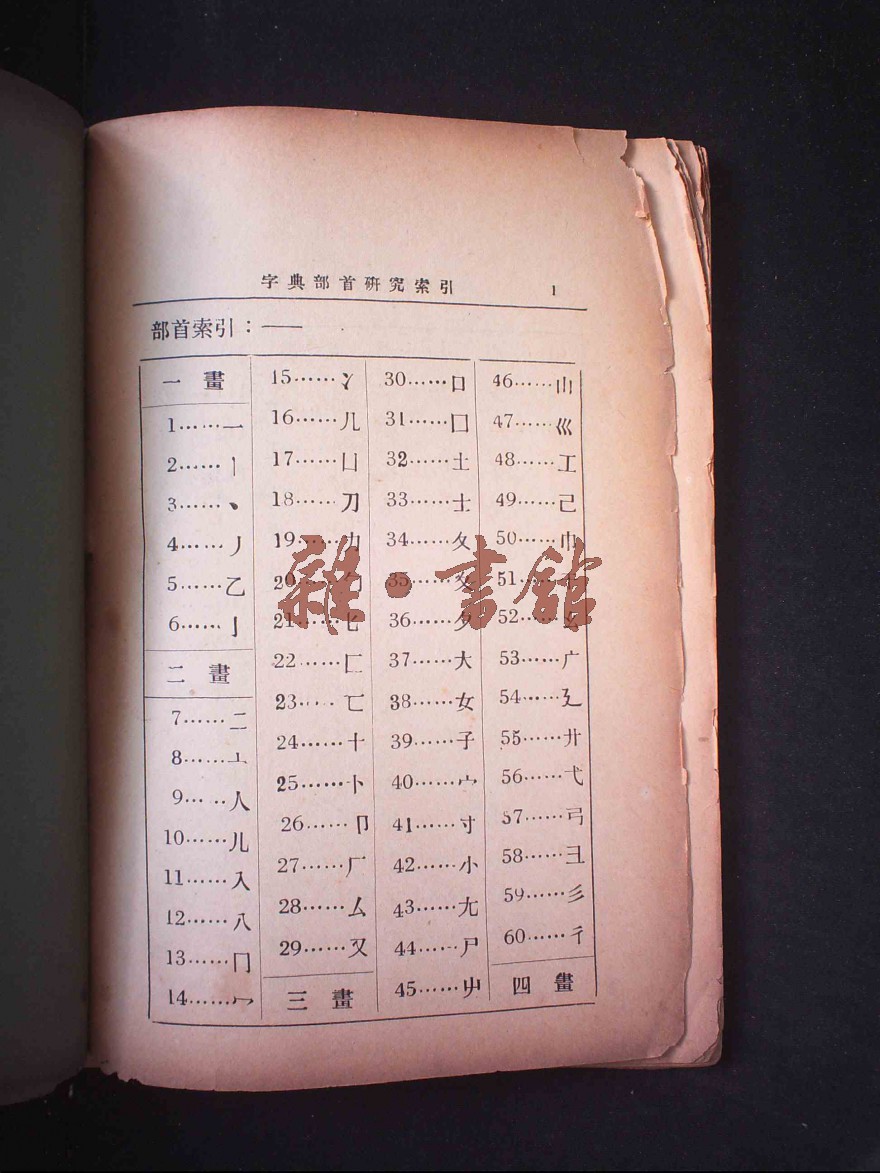 字典部首研究索引 1
部首索引：——
一畫
1……一
2……丨
3……丶
4……丿
5……乙
6……亅
二畫
7……二
8……亠
9……人
10……儿
11……入
12……八
13……冂
14……冖
15……冫
16……几
17……凵
18……刀
19……力
20……勹
21……匕
22……匚
23……匸
24……十
25……卜
26……卩
27……厂
28……厶
29……又
三畫
30……口
31……囗
32……土
33……士
34……夂
35……夊
36……夕
37……大
38……女
39……子
40……宀
41……寸
42……小
43……尢
44……尸
45……屮
46……山
47……巛
48……工
49……己
50……巾
51……干
52……幺
53……广
54……廴
55……廾
56……弋
57……弓
58……彐
59……彡
60……彳
四畫
雜·書館